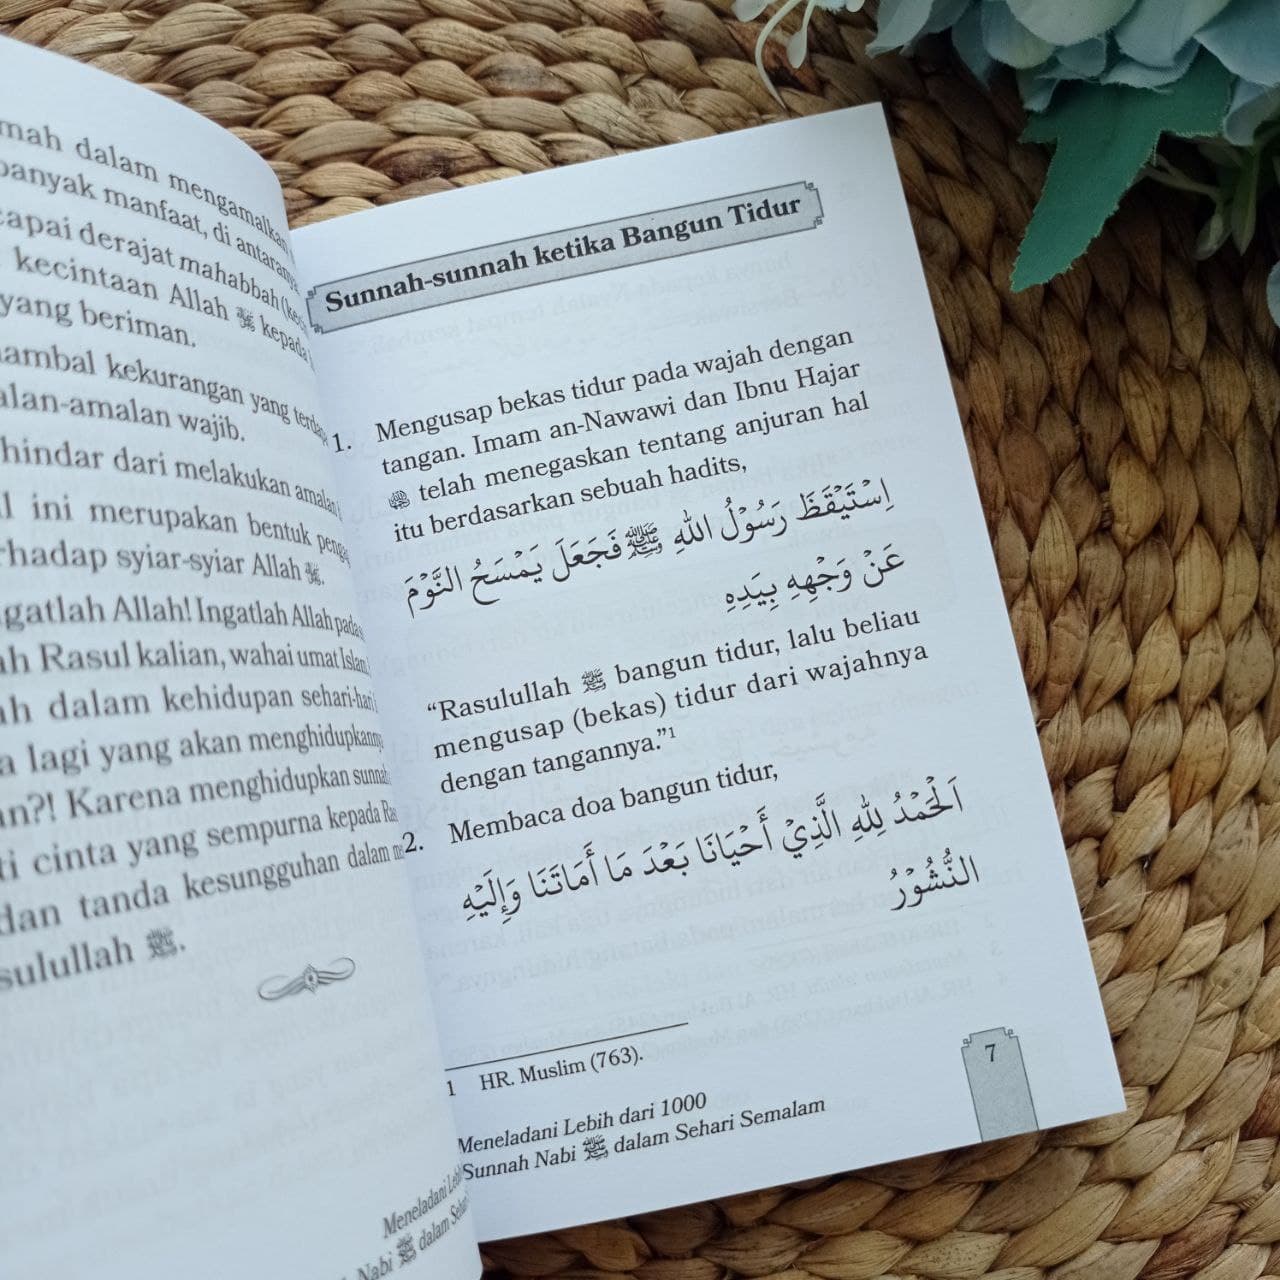 dalam mengamalkan
banyak manfaat, di antaranya
derajat mahabbah
kecintaan Allah ﷻ kepada
yang beriman.
kekurangan yang
amalan-amalan wajib.
dari melakukan amalan
ini merupakan bentuk
terhadap syiar-syiar Allah ﷻ.
Ingatlah Allah! Ingatlah Allah pada
Rasul kalian, wahai umat Islam
dalam kehidupan sehari-hari
lagi yang akan menghidupkannya
Karena menghidupkan sunnah
cinta yang sempurna kepada
dan tanda kesungguhan dalam
Rasulullah ﷺ.
Meneladani
Nabi ﷺ dalam
Sunnah-sunnah ketika Bangun Tidur
1. Mengusap bekas tidur pada wajah dengan
tangan. Imam an-Nawawi dan Ibnu Hajar
telah menegaskan tentang anjuran hal
itu berdasarkan sebuah hadits,
اِسْتَيْقَظَ رَسُوْلُ اللهِ ﷺ فَجَعَلَ يَمْسَحُ النَّوْمَ
عَنْ وَجْهِهِ بِيَدِهِ
“Rasulullah ﷺ bangun tidur, lalu beliau
mengusap (bekas) tidur dari wajahnya
dengan tangannya.”¹
2. Membaca doa bangun tidur,
اَلْحَمْدُ لِلهِ الَّذِيْ أَحْيَانَا بَعْدَ مَا أَمَاتَنَا وَإِلَيْهِ
النُّشُوْرُ
1 HR. Muslim (763).
Meneladani Lebih dari 1000
Sunnah Nabi ﷺ dalam Sehari Semalam
7